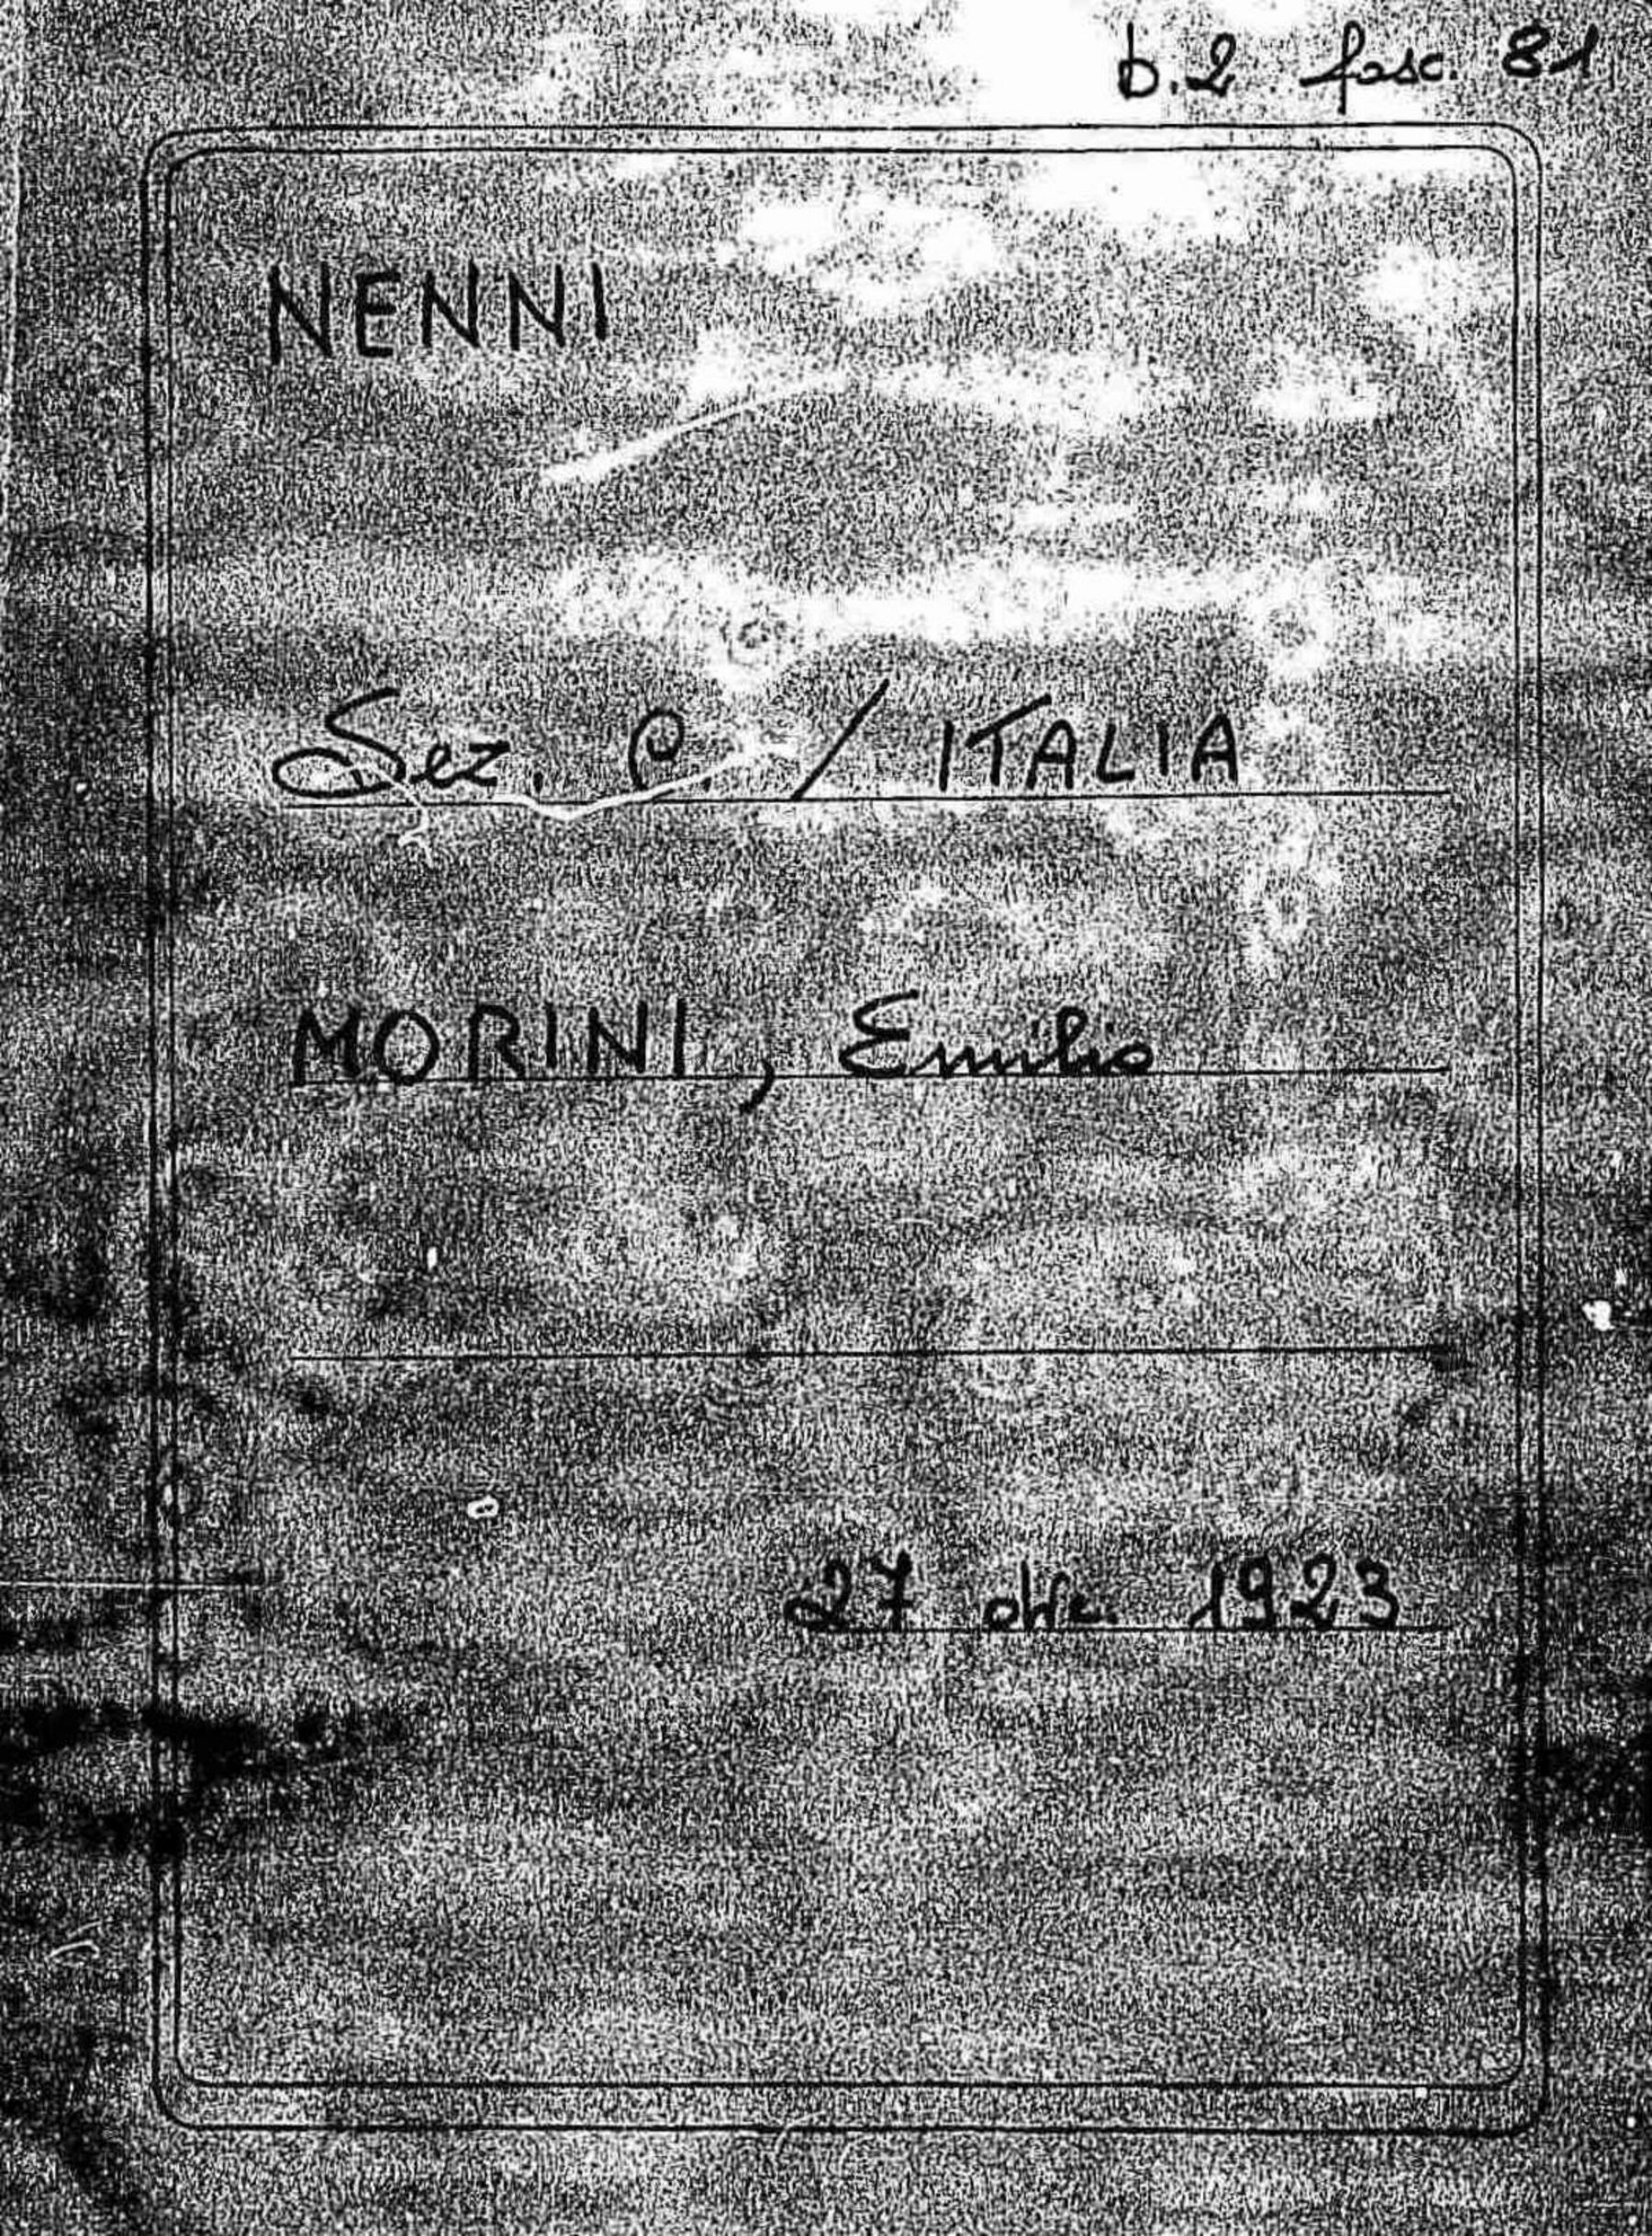 b.2 fasc. 81
NENNI
Sez. C. / ITALIA
MORINI, Emilio
27 1923